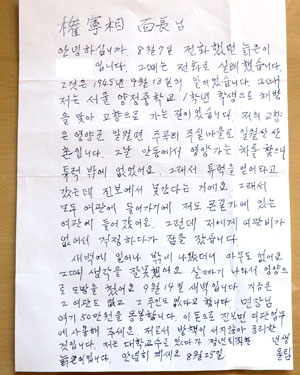 權寧相 面長님
안녕하십니까 8月7日 전화했던 늙은이
입니다. 그때는 전화로 실례했습니다
그것은 1945년 9月13일의 일이었습니다. 그때
저는 서울 양정중학교 1학년 학생으로 해방
을 맞아 고향으로 가는 길이었습니다. 저의 고향
은 영양군 일월면 주곡리 주실마을로 일월산 산
촌입니다. 그날 안동에서 영양가는 차를 찾으니
트럭 밖에 없었어요. 그래서 트럭을 얻어타고
갔는데 진보에서 못간다는 거에요. 그래서
모두 여관에 들어가기에 저도 길가에 있는
여관에 들어갔어요. 그런데 저에게 여관비가
없어서 걱정하다가 잠을 잤습니다.
새벽에 일어나 밖에 나왔더니 아무도 없어요
그때 생각을 잘못했어요 살짜기 나와서 영양으
로 도망을 쳤어요 9月14日 새벽입니다. 지금은
그 여관도 없고 그 주인도 없다고 합니다. 면장님
여기 50만원을 동봉합니다. 이 돈으로 진보면 여관업무
에 사용해 주세요. 저로서 방책이 서지않아
저는 대학교수로 있다가 정년퇴직한
늙은이입니다. 안녕히 계세요 8月25日 올림